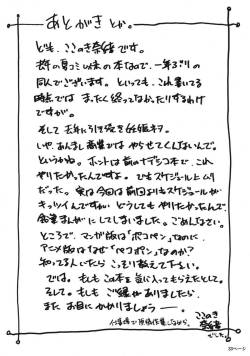 あとがきとか。
ども、ここのき奈緒です。
去年の夏コミ以来の本なので、一年ぶりの
同人でございます。といっても、これ書いてる
時点では まったく終ってなかったりするわけ
ですが。
そして去年に引き続き妊婦ネタ。
いや、あんまし商業では やらせてくんないんで。
というかね。ホントは前のナデシコ本で、これ
やりたかったんですよ。でもスケジュール上ムリ
だった。実は今回は前回よりもスケジュールが
キッツイんですがい どうしてもやりたかったんで、
全業まんがにしてしまいました。ごめんなさい。
ところで、マンガ版は「ポコペン」なのに
アニメ版はなぜ「ペコポン」なのか?
知ってる人いたらこっそり教えて下さい。
では。もしもこの本を気に入ってもらえたとして。
そして。もしもご縁がありましたら
また お目にかかりましょう――。
ここのき
奈緒
でした。